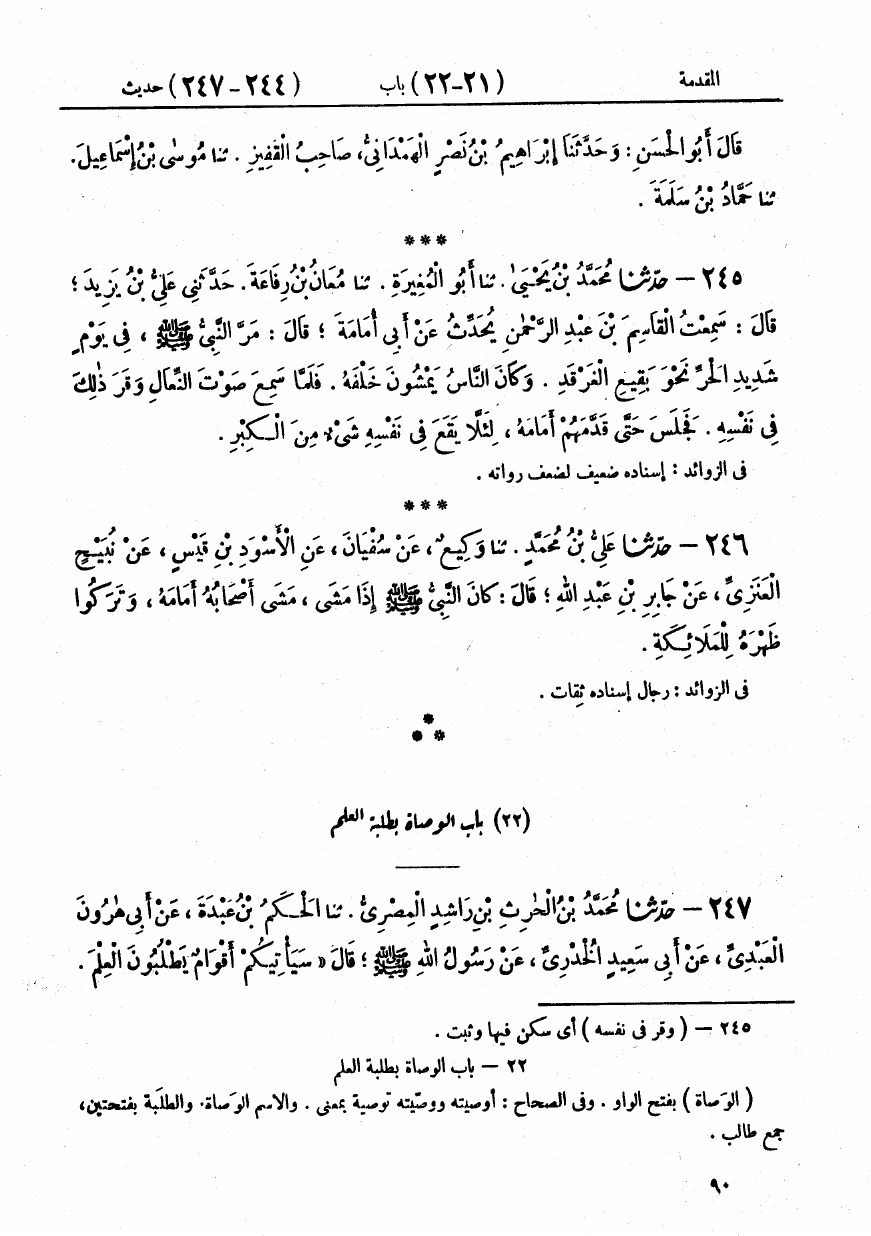 المقدمة (٢١-٢٢) باب (٢٤٤-٢٤٧) حديث
قَالَ أَبُو الْحَسَنِ: وَحَدَّثَنَا إِبْرَاهِيمُ بْنُ نَصْرٍ الْهَمْدَانِيُّ، صَاحِبُ الْقَفِيزِ. ثنا مُوسَى بْنُ إِسْمَاعِيلَ.
ثنا حَمَّادُ بْنُ سَلَمَةَ.
***
٢٤٥ – حدّثنا مُحَمَّدُ بْنُ يَحْيَىٰ. ثنا أَبُو الْمُغِيرَةِ. ثنا مُعَانُ بْنُ رِفَاعَةَ. حَدَّثَنِي عَلِيُّ بْنُ يَزِيدَ؛
قَالَ: سَمِعْتُ الْقَاسِمَ بْنَ عَبْدِ الرَّحْمٰنِ يُحَدِّثُ عَنْ أَبِي أُمَامَةَ؛ قَالَ: مَرَّ النَّبِيُّ ﷺ، فِي يَوْمٍ
شَدِيدِ الْحَرِّ نَحْوَ بَقِيعِ الْغَرْقَدِ. وَكَانَ النَّاسُ يَمْشُونَ خَلْفَهُ. فَلَمَّا سَمِعَ صَوْتَ النِّعَالِ وَقَرَ ذٰلِكَ
فِي نَفْسِهِ. فَجَلَسَ حَتَّى قَدَّمَهُمْ أَمَامَهُ، لِئَلَّا يَقَعَ فِي نَفْسِهِ شَيْءٌ مِنَ الْكِبْرِ.
فى الزوائد: إسناده ضعيف لضعف رواته.
***
٢٤٦ – حدّثنا عَلِيُّ بْنُ مُحَمَّدٍ. ثنا وَكِيعٌ، عَنْ سُفْيَانَ، عَنِ الْأَسْوَدِ بْنِ قَيْسٍ، عَنْ نُبَيْحٍ
الْعَنَزِيِّ، عَنْ جَابِرِ بْنِ عَبْدِ اللهِ؛ قَالَ: كَانَ النَّبِيُّ ﷺ إِذَا مَشَى، مَشَى أَصْحَابُهُ أَمَامَهُ، وَتَرَكُوا
ظَهْرَهُ لِلْمَلَائِكَةِ.
فى الزوائد: رجال إسناده ثقات.
***
(٢٢) باب الوصاة بطلبة العلم
٢٤٧ – حدّثنا مُحَمَّدُ بْنُ الْحٰرِثِ بْنِ رَاشِدٍ الْمِصْرِيُّ. ثنا الْحَكَمُ بْنُ عَبْدَةَ، عَنْ أَبِي هٰرُونَ
الْعَبْدِيِّ، عَنْ أَبِي سَعِيدٍ الْخُدْرِيِّ، عَنْ رَسُولُ اللهِ ﷺ؛ قَالَ «سَيَأْتِيكُمْ أَقْوَامٌ يَطْلُبُونَ الْعِلْمَ.
٢٤٥ – (وقر فى نفسه) أى سكن فيها وثبت.
٢٢ – باب الوصاة بطلبة العلم
(الوَصاة) بفتح الواو. وفى الصحاح: أوصيته ووصّيته توصية بمعنى. والاسم الوَصاة. والطلَبة بفتحتين،
جمع طالب.
٩٠